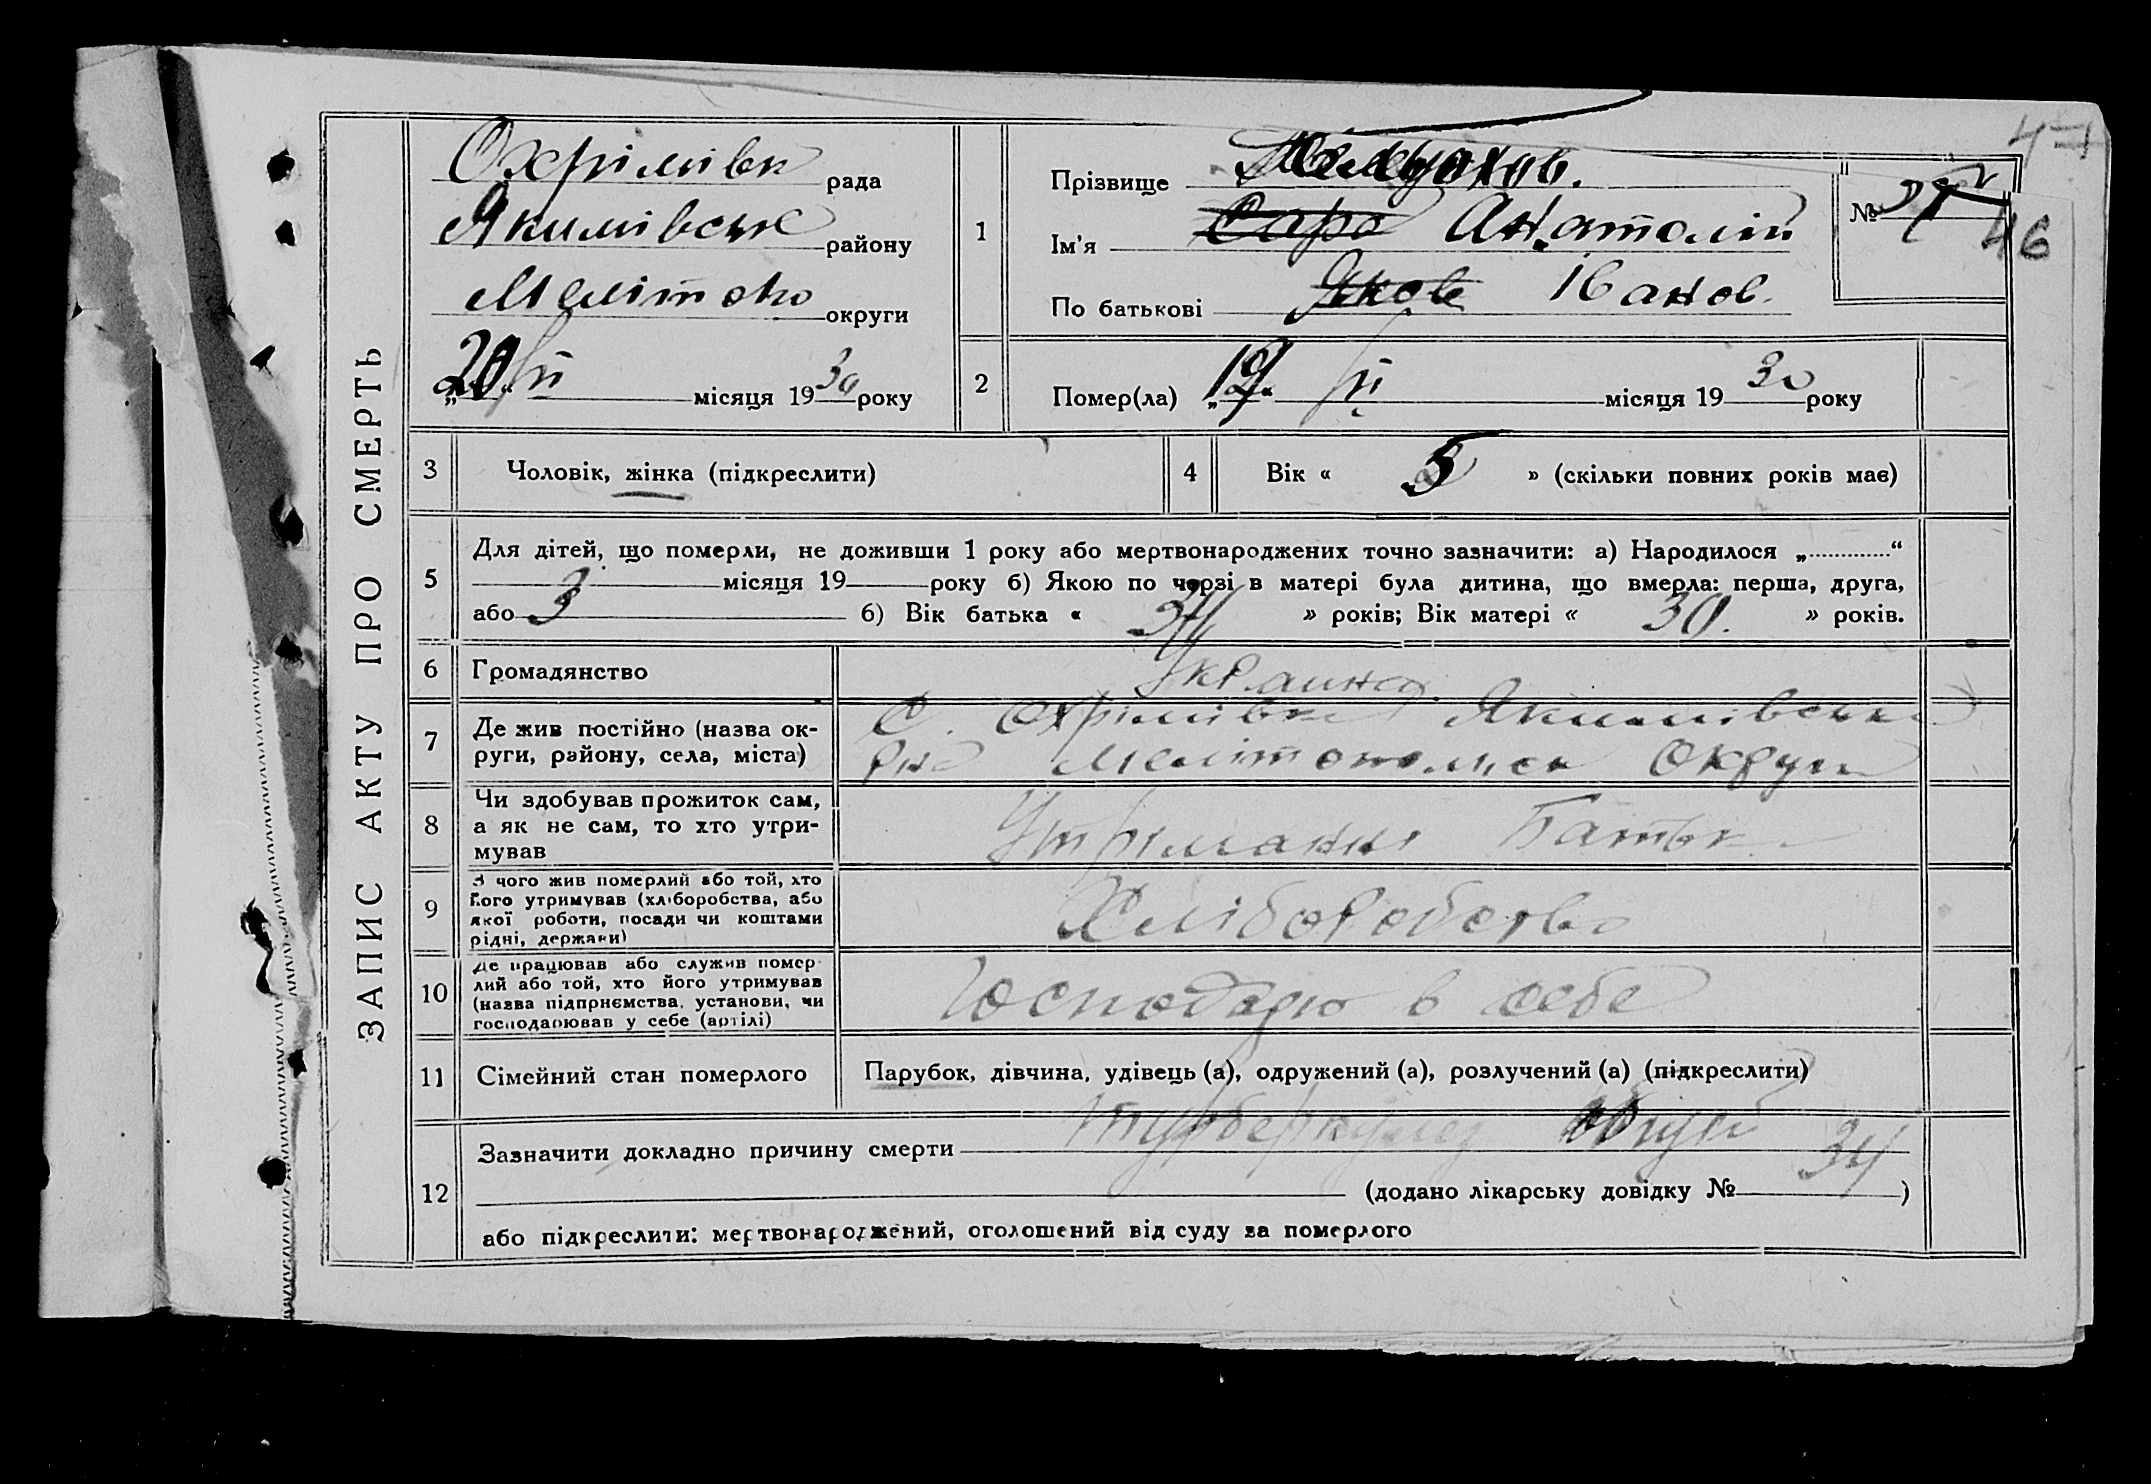 ЗАПИС АКТУ ПРО СМЕРТЬ
47
Охрімівк рада
Якимівськ району
Мелітопо округи
„20“ VI місяця 1930 року
1
Прізвище
Ім'я Сара Анатолій
По батькові Яковл Іванов.
№
46
2
Помер(ла) „19“ VI місяця 1930 року
3 Чоловік, жінка (підкреслити)
4 Вік « 5 » (скільки повних років має)
5 Для дітей, що померли, не доживши 1 року або мертвонароджених точно зазначити: а) Народилося „............“
місяця 19 року б) Якою по черзі в матері була дитина, що вмерла: перша, друга,
або 3 б) Вік батька « 34 » років; Вік матері « 30. » років.
6 Громадянство Украина
7 Де жив постійно (назва ок-
руги, району, села, міста)
С. Охрімівка Якимівськ
р-на Мелітопольск Округи
8 Чи здобував прожиток сам,
а як не сам, то хто утри-
мував
Утріманні Батьк
9 З чого жив померлий або той, хто
його утримував (хліборобства, або
якої роботи, посади чи коштами
рідні, держави)
Хліборобство
10 Де працював або служив помер-
лий або той, хто його утримував
(назва підприємства, установи, чи
господарював у себе (артілі)
Господарю в себе
11 Сімейний стан померлого Парубок, дівчина, удівець (а), одружений (а), розлучений (а) (підкреслити)
12 Зазначити докладно причину смерти туберкулез общий
(додано лікарську довідку № 34)
або підкреслити: мертвонароджений, оголошений від суду за померлого